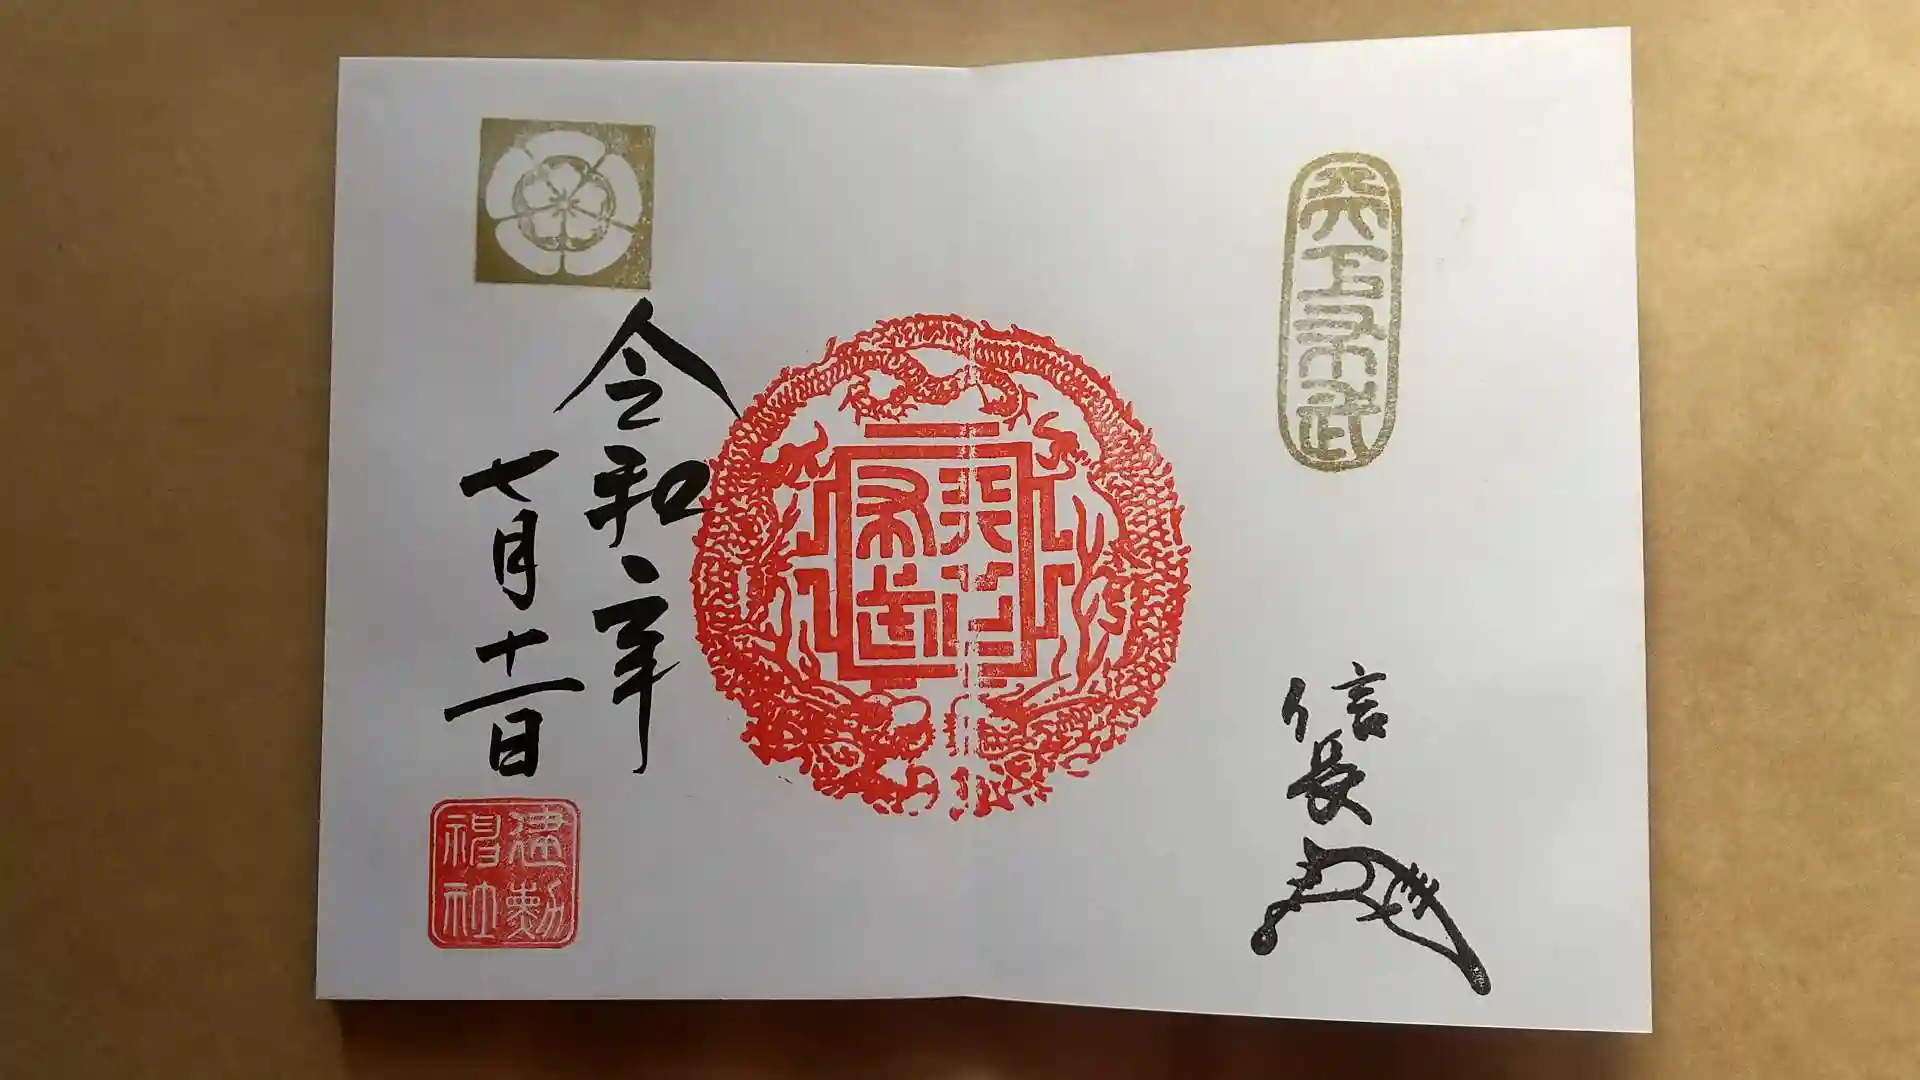 天下布武
信長
天下布武
令和二年
七月十一日
建勲
神社